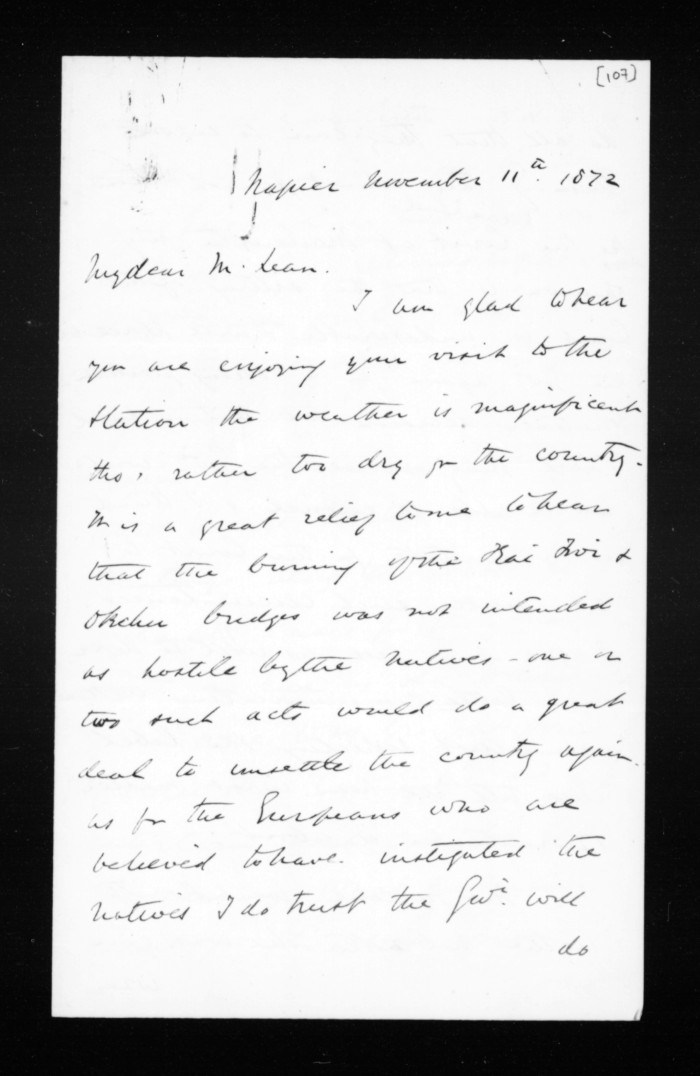 [107]
Napier November 11th. 1872
My dear McLean.
I am glad to hear
you are enjoying your visit to the
station the weather is magnificent
tho, rather too dry for the country.
It is a great relief to me to hear
that the burning of the Kai Iwi &
Okehu bridges was not intended
as hostile by the natives - one or
two such acts would do a great
deal to unsettle the country again.
as for the Europeans who are
believed to have instigated the
natives I do trust the Govt. will
do